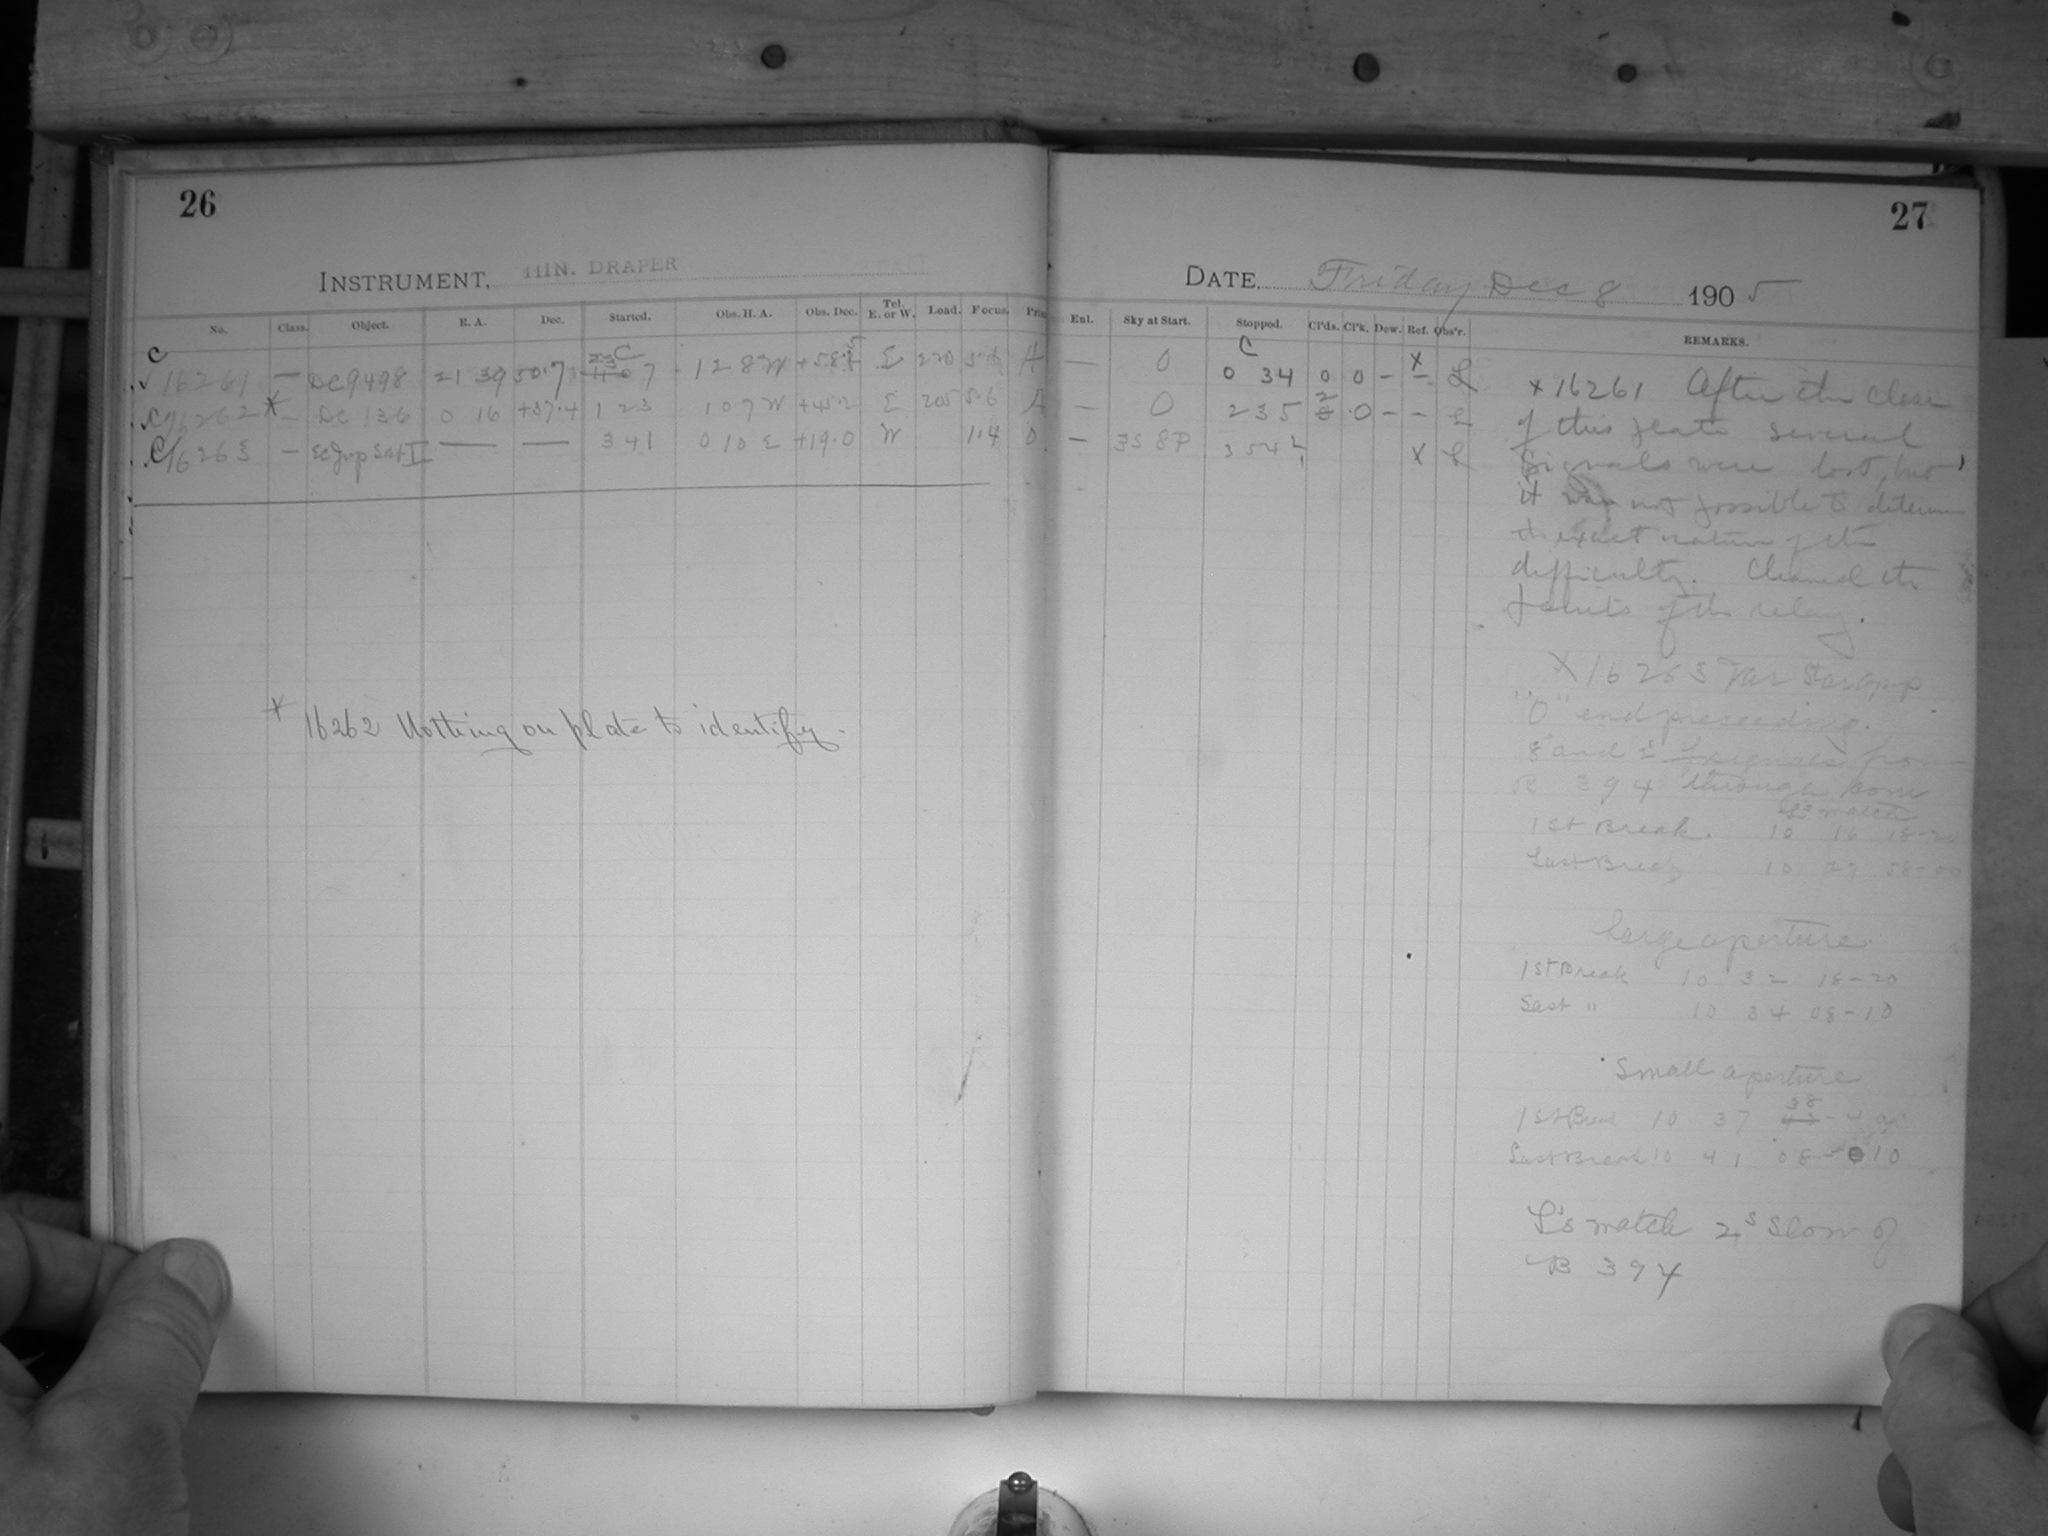 26
INSTRUMENT, 11IN. DRAPER
No. Class. Object. R. A. Dec. Started. Obs. H. A. Obs. Dec. Tel. E. or W. Load. Focus.
C
✓ 16261 — DC9498 21 39 50.7 7 1 28 W E 270 A
C 16262 * — DC 136 0 16 +37.4 1 23 1 07 W +45.2 E 205 5.6 A
C 16263 — Ec Jup Sat II — — 3 41 0 10 E +19.0 W 1.4 0
* 16262 Nothing on plate to identify.
27
DATE, Friday Dec 8 1905
Enl. Sky at Start. Stopped. Cl'ds. Cl'k. Dew. Ref. Obs'r. REMARKS.
C
— 0 0 34 0 0 – x L
— 0 2 35 2 0 – – L
— 3 54 x L
x 16261 After the close
of this plate several
signals were lost, but
it was not possible to determine
the exact nature of the
difficulty. Cleaned the
points of the relay.
X 16263 Var Star app
"0" end preceding.
B 394 through
L's watch
1st Break. 10 16 18-20
Last Break 10 58-00
Large aperture
1st Break 10 32 18-20
Last " 10 34 08-10
Small aperture
38
1st Break 10 37
Last Break 10 41 08 10
L's watch 2s slow of
B 394